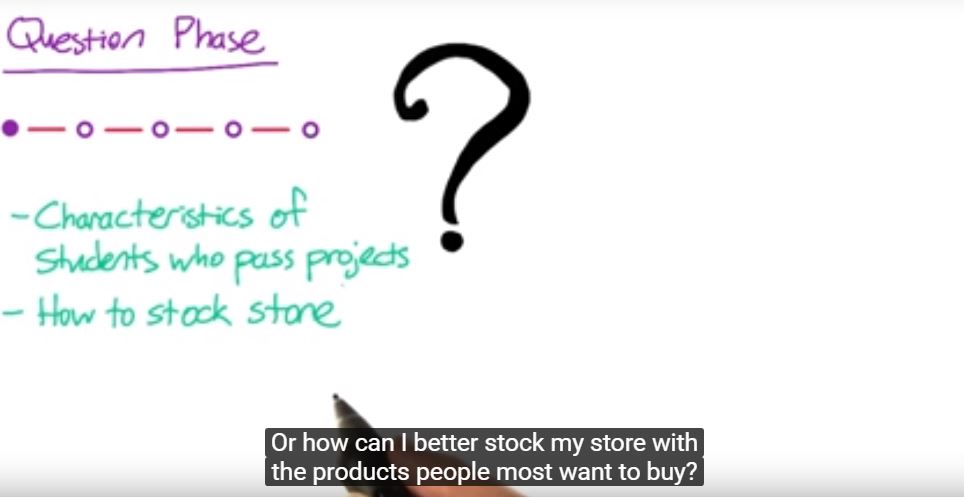 Question Phase
- Characteristics of
students who pass projects
- How to stock store
Or how can I better stock my store with
the products people most want to buy?